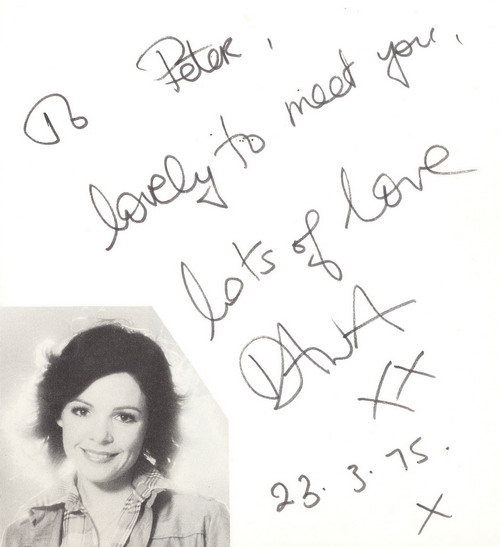 To Peter,
lovely to meet you,
lots of love
DANA
XX
23.3.75.
X